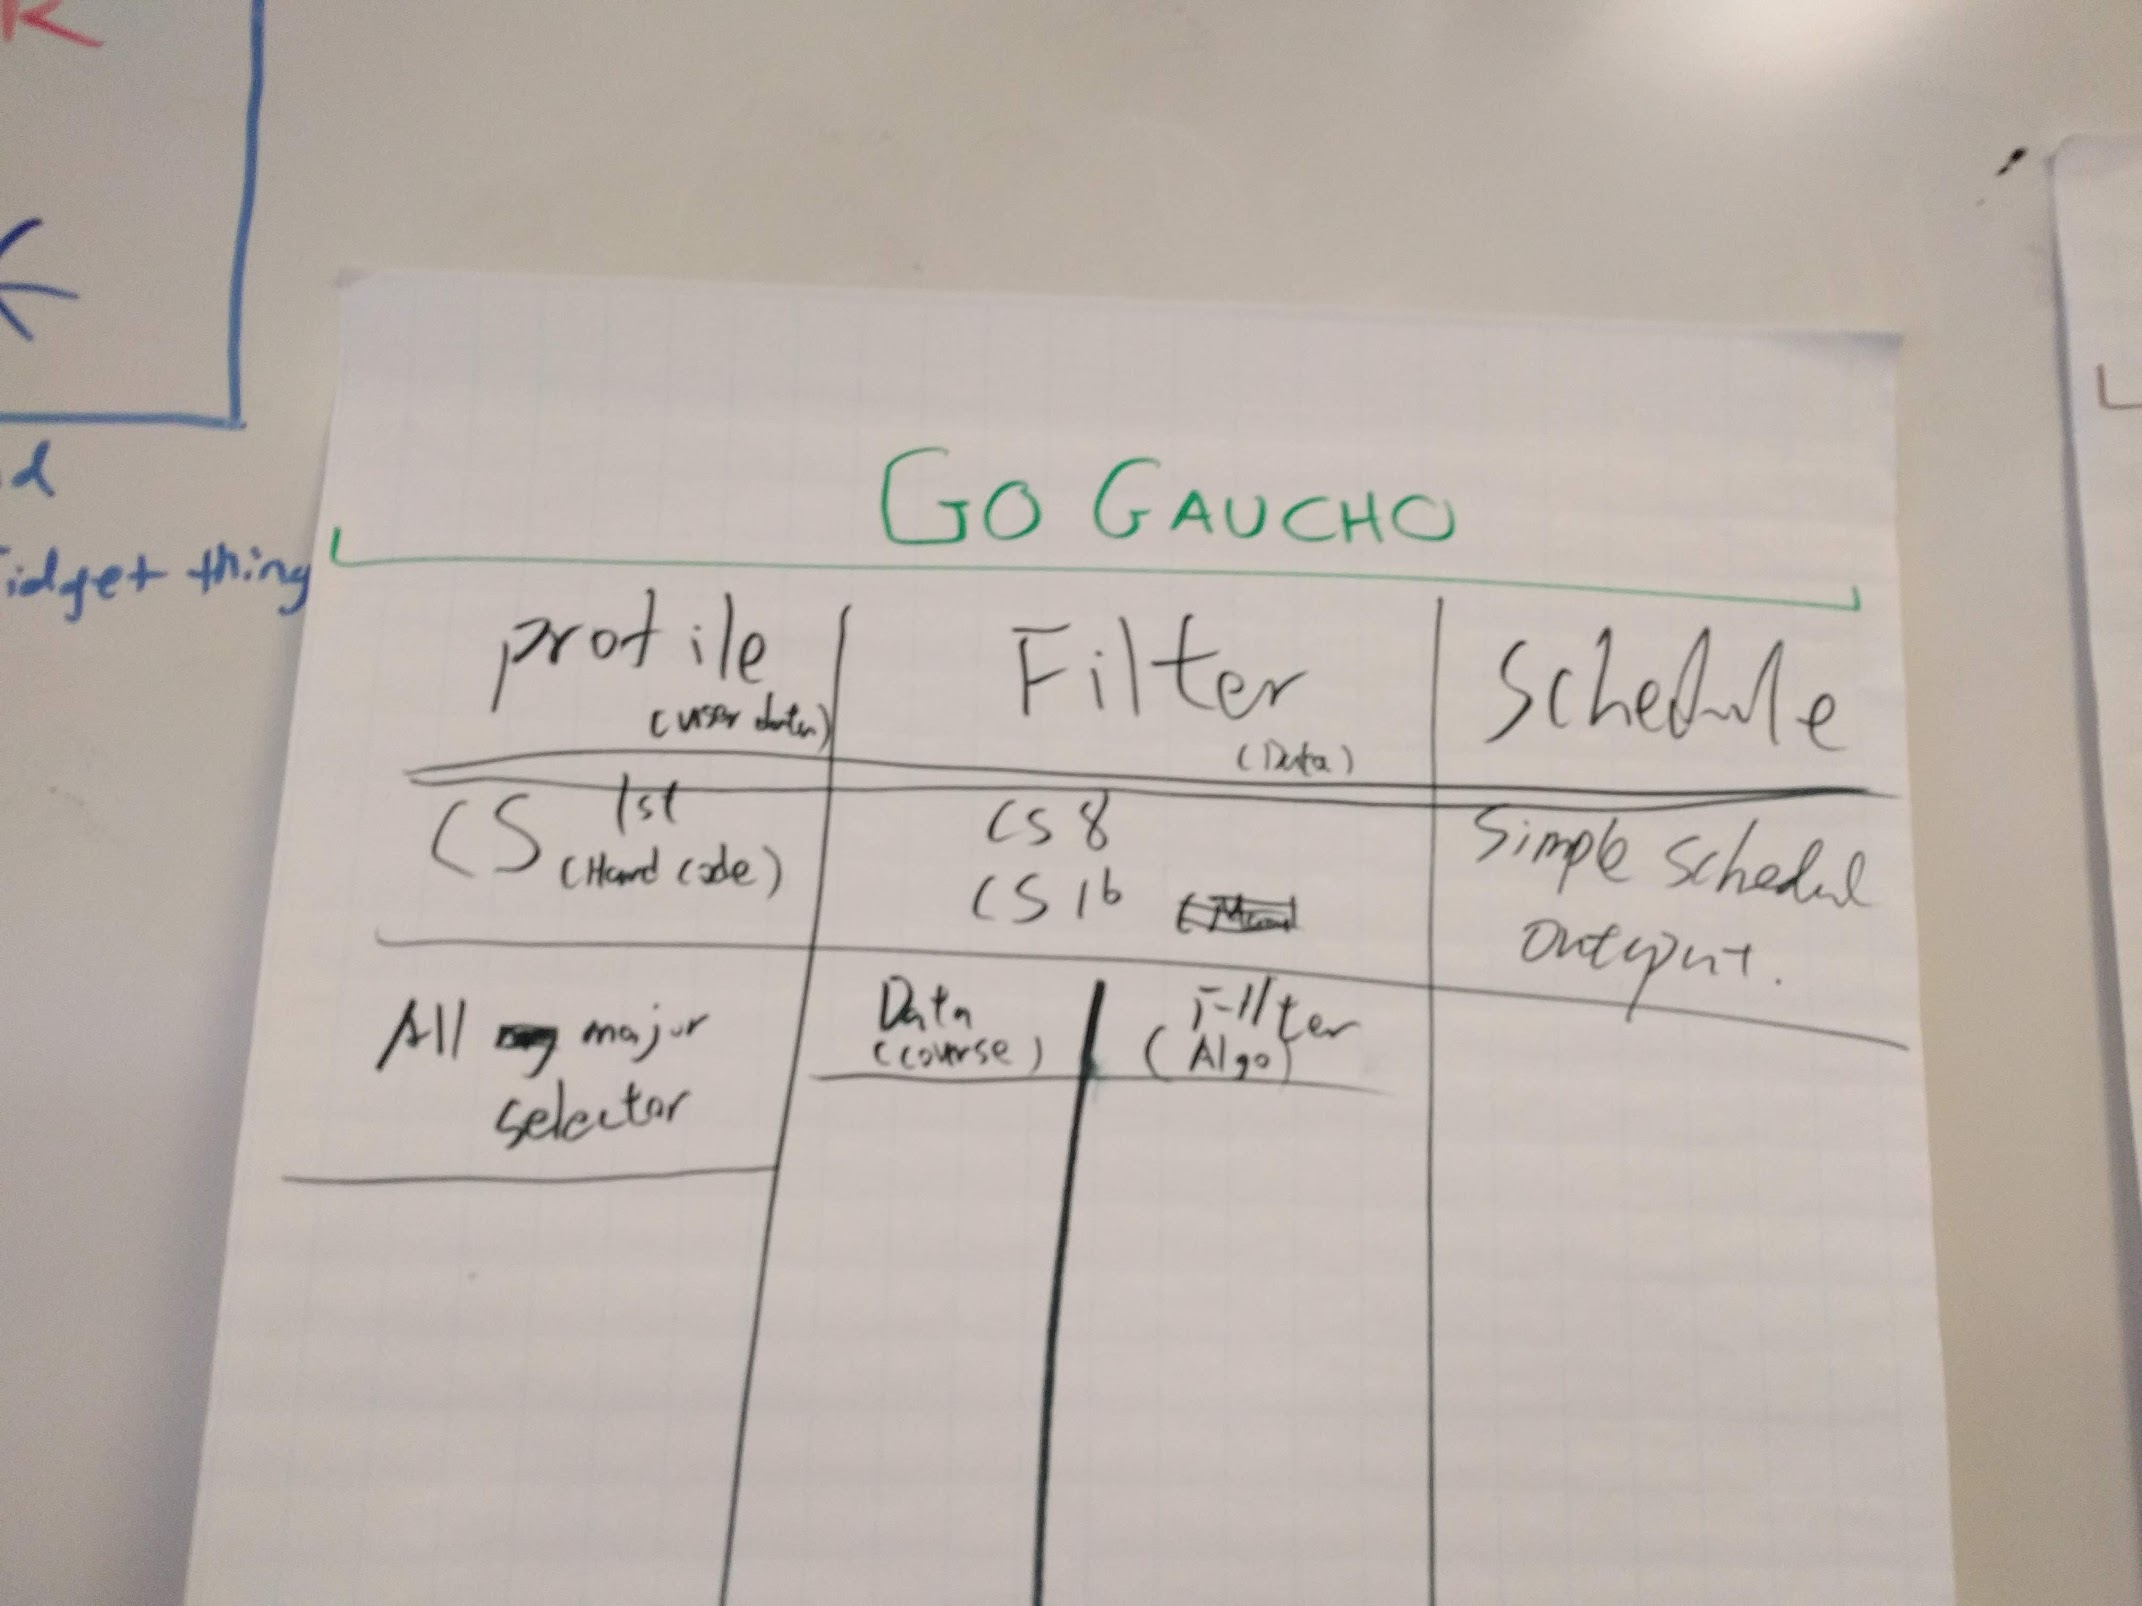 K
d
idget thing
GO GAUCHO
profile
(user data)
Filter
(Data)
Schedule
CS 1st
(Hard code)
CS 8
CS 16
Simple Schedul
Output.
All major
selector
Data
(course)
Filter
(Algo)